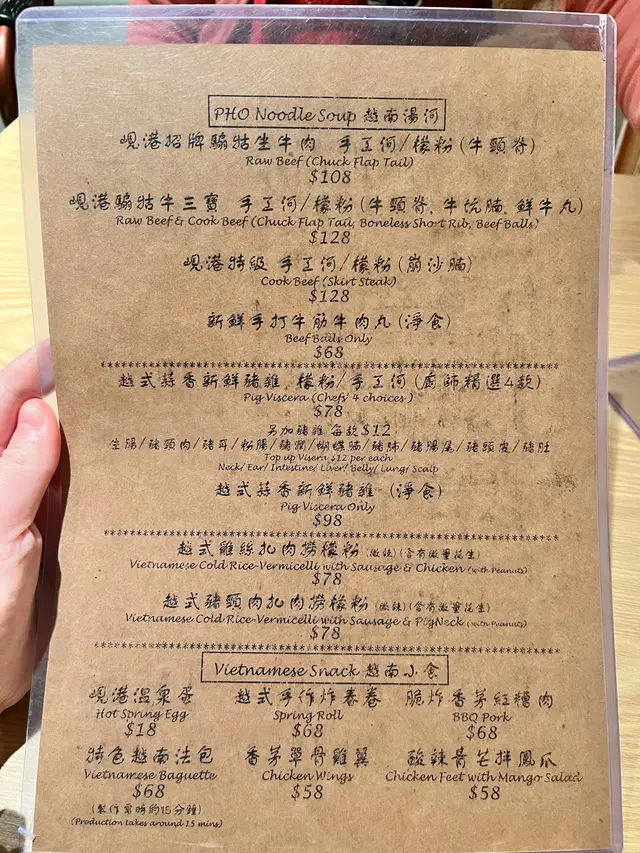 PHO Noodle Soup 越南湯河
峴港招牌騸牯生牛肉 手工河/檬粉 (牛頸脊)
Raw Beef (Chuck Flap Tail)
$108
峴港騸牯牛三寶 手工河/檬粉 (牛頸脊, 牛坑腩, 鮮牛丸)
Raw Beef & Cook Beef (Chuck Flap Tail, Boneless Short Rib, Beef Balls)
$128
峴港特級 手工河/檬粉 (崩沙腩)
Cook Beef (Skirt Steak)
$128
新鮮手打牛筋牛肉丸 (淨食)
Beef Balls Only
$68
越式蒜香新鮮豬雜, 檬粉/手工河 (廚師精選4款)
Pig Viscera (Chefs' 4 choices)
$78
另加豬雜 每款$12
生腸/豬頸肉/豬耳/粉腸/豬潤/蝴蝶腩/豬肺/豬腸尾/豬頭皮/豬肚
Top up Visera $12 per each
Neck/ Ear/ Intestine/ Liver/ Belly/ Lung/ Scalp
越式蒜香新鮮豬雜 (淨食)
Pig Viscera Only
$98
越式雞絲扎肉撈檬粉 (微辣) (含有微量花生)
Vietnamese Cold Rice-Vermicelli with Sausage & Chicken (with Peanuts)
$78
越式豬頸肉扎肉撈檬粉 (微辣) (含有微量花生)
Vietnamese Cold Rice-Vermicelli with Sausage & PigNeck (with Peanuts)
$78
Vietnamese Snack 越南小食
峴港溫泉蛋 越式手作炸春卷 脆炸香茅紅糟肉
Hot Spring Egg Spring Roll BBQ Pork
$18 $68 $68
特色越南法包 香茅單骨雞翼 酸辣青芒拌鳳爪
Vietnamese Baguette Chicken Wings Chicken Feet with Mango Salad
$68 $58 $58
(製作需時約15分鐘)
(Production takes around 15 mins)